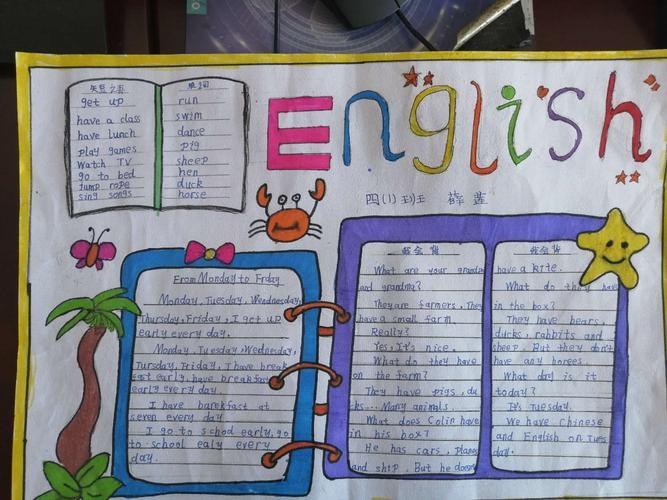 English
四(1)班
短语
get up
have a class
have lunch
play games
Watch TV
go to bed
Jump rope
sing songs
单词
run
swim
dance
pig
sheep
hen
duck
horse
From Monday to Frday
Monday, Tuesday, Wednesday,
Thursday, Friday, I get up
early every day.
Monday, Tuesday, Wednesday,
Tursday, Friday, I have break
fast early. have breakfast
early every day.
I have barekfast at
seven every day
I go to schod early, go
to school ealy every
day.
我会背
What are your grandpa
and grandma?
They are farmers, They
have a small farm.
Really?
Yes, It's nice.
What do they have
on the farm?
They have pigs, du
cks....Many animals.
What does Colin have
in his box?
He has cars, planes
and ship. But he doesn't
我会背
have a kite.
What do they have
in the box?
They have bears,
ducks, rabbits and
sheep. But they don't
have any horees.
What day is it
today?
It's Tuesday.
We have chinese
and English on Tues
day.